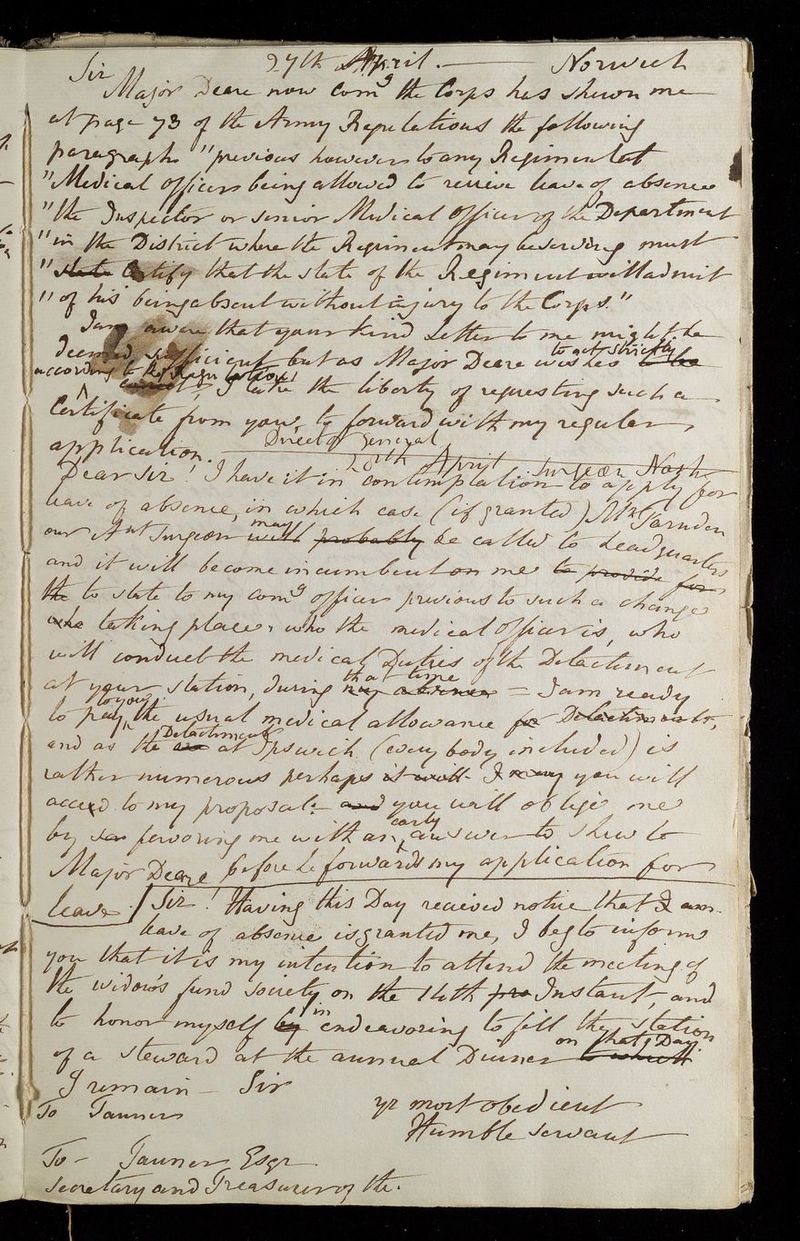 27th April. — Norwich
Sir
Major Deare now Comg the Corps has shewn me
at page 73 of the Army Regulations the following
paragraph "previous however to any Regimental
"Medical officers being allowed to receive leave of absence
"the Inspector or senior Medical officer of the Department
"in the District where the Regiment may be serving must
"state Certify that the state of the Regiment will admit
"of his being absent without injury to the Corps."
I am aware that your kind Letter to me might be
deemed sufficient but as Major Deare wishes to act strictly to be
according to the Regulations
correct, I take the liberty of requesting such a
Certificate from you, to forward with my regular
application. — Director General
28th April Surgeon Nash
Dear Sir! I have it in contemplation to apply for
leave of absence, in which case (if granted) Mr
our Ast Surgeon may will probably be called to Headquarters
and it will become incumbent on me to provide for
the to state to my comg officer previous to such a change
who taking place, who the medical officer is, who
will conduct the medical Duties of the Detachment
at your station, during that time my absence = I am ready
to pay to you, the usual medical allowance for Detachments,
and as the Detachment at Ipswich (every body included) is
rather numerous perhaps it will I may you will
accede to my proposal = and you will oblige me
by favoring me with an early answer to shew to
Major Deare before he forwards my application for
leave. / Sir! Having this Day received notice that I am
leave of absence is granted me, I beg to inform
you that it is my intention to attend the meeting of
the widow's fund society on the 14th pro Instant, and
to honor myself by in endeavoring to fill the station
of a steward at the annual Dinner on that Day. to which
I remain — Sir
To Tanner
yr most obedient
Humble servant
To — Tanner Esqr
Secretary and Treasurer of the.